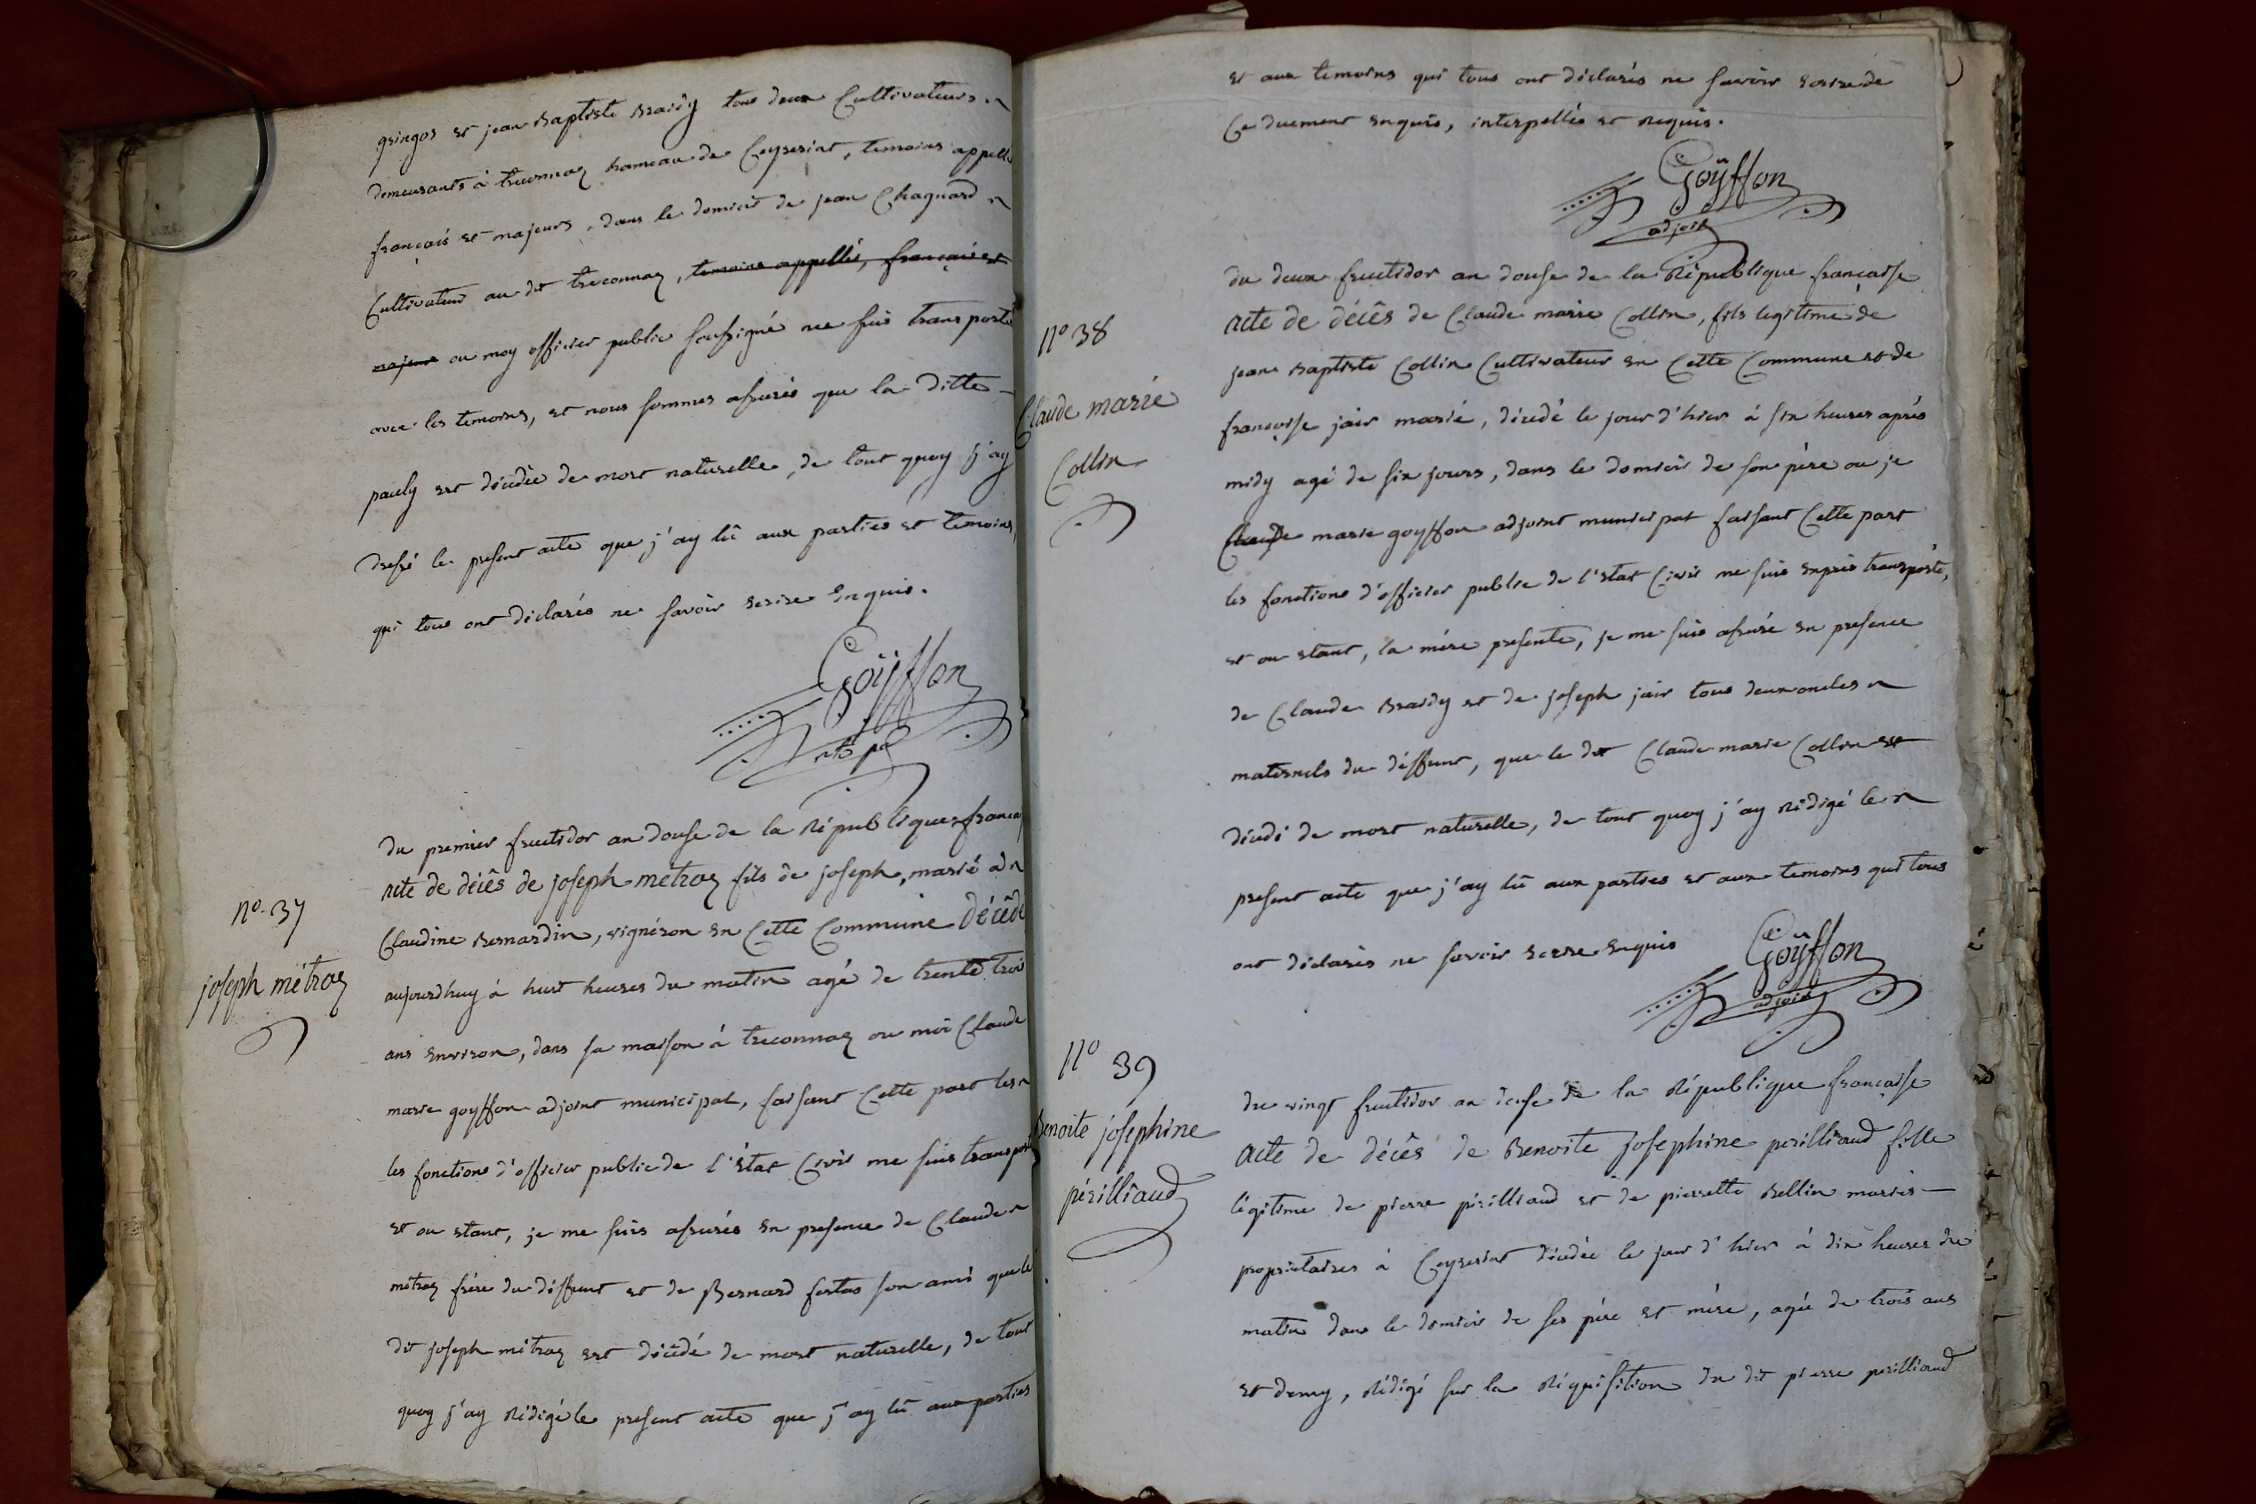 gringoz et jean Baptiste Braidy tous deux Cultivateurs
demeurants à treconnaz hameau de Ceyseriat, temoins appellé
français et majeurs, dans le domicil de jean Chagnard
Cultivateur au dt treconnaz, temoins appellés, français et
majeurs ou moy officier public soussigné me suis transporté
avec les temoins, et nous sommes assurés que la ditte
pauly est décédée de mort naturelle, de tout quoy j'ay
dressé le present acte que j'ay lû aux parties et temoins,
qui tous ont déclarés ne savoir ecrire enquis.
Goÿffon
N° 37
joseph métraz
du premier fructidor an douse de la République françai
acte de décês de joseph métraz fils de joseph, marié à
Claudine Bernardin, vignéron en Cette Commune décêdé
aujourdhuy à huit heures du matin agé de trente trois
ans environ, dans sa maison à treconnaz ou moi Claude
marie goyffon adjoint municipal, faisant Cette part les
les fonctions d'officier public de l'état Civil me suis transport
et ou etant, je me suis assurés en presence de Claude
métraz frère du déffunt et de Bernard fertas son ami que le
dt joseph métraz est décédé de mort naturelle, de tout
quoy j'ay rédigé le present acte que j'ay lû aux parties
et aux temoins qui tous ont déclarés ne savoir ecrire de
Ce duement enquis, interpellés et requis.
Goÿffon
adjoit
N° 38
Claude marie
Collin
du deux fructidor an douse de la République française
acte de décês de Claude marie Collin, fils legitime de
jean Baptiste Collin Cultivateur en Cette Commune et de
françoise jair marié, décédé le jour d'hier à six heures après
midy agé de six jours, dans le domicil de son père ou je
Claude marie goyffon adjoint municipal faisant Cette part
les fonctions d'officier public de l'etat Civil me suis exprès transporté,
et ou etant, la mére presente, je me suis assuré en presence
de Claude Braidy et de joseph jair tous deux oncles
maternels du déffunt, que le dit Claude marie Collin est
décédé de mort naturelle, de tout quoy j'ay rédigé le
present acte que j'ay lû aux parties et aux temoins qui tous
ont déclarés ne savoir ecrire enquis
Goÿffon
adjoit
N° 39
Benoite josephine
périlliaud
du vingt fructidor an douse de la République française
acte de décês de Benoite Josephine perilliaud fille
légitime de pierre périlliaud et de pierrette Bellin mariés
proprietaires à Ceyseriat décédée le jour d'hier à dix heures du
matin dans le domicil de ses pére et mére, agée de trois ans
et demy, rédigé sur la réquisition du dit pierre perilliaud